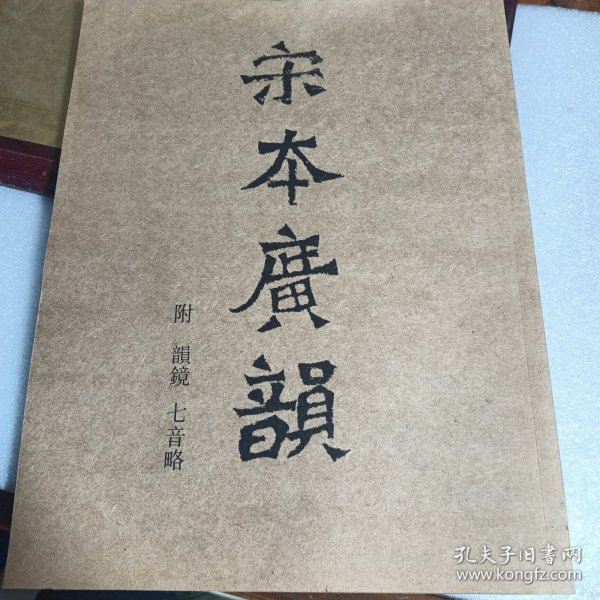 宋本廣韻
附 韻鏡 七音略
孔夫子旧书网
www.kongfz.com